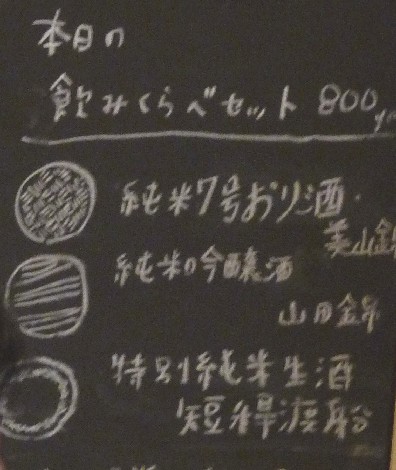 本日の
飲みくらべセット 800yen
純米7号おり酒
美山錦
純米吟醸酒
山田錦
特別純米生酒
短稈渡船